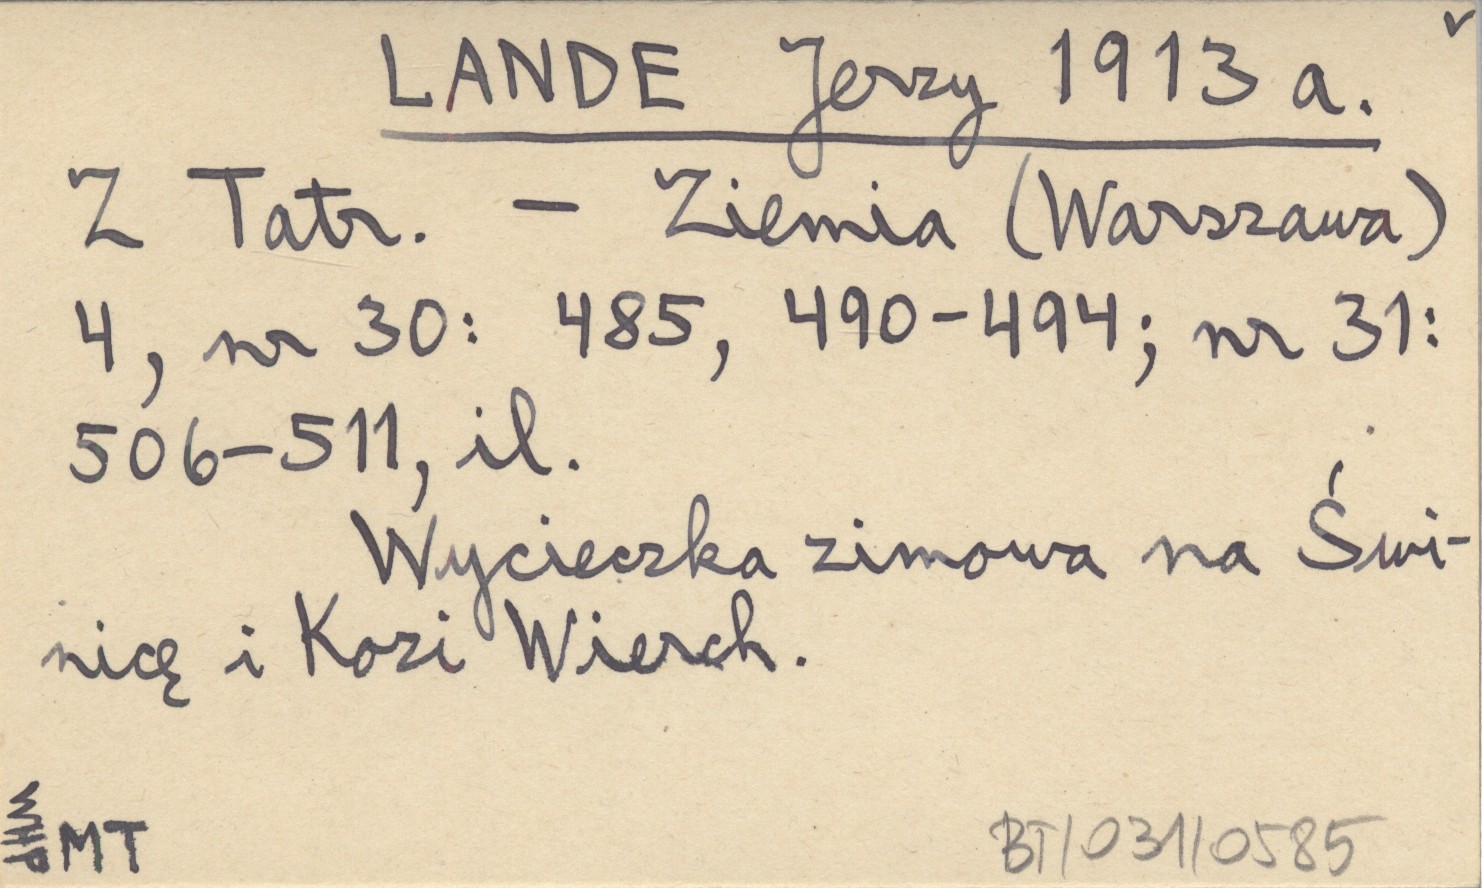 LANDE Jerzy 1913 a. ✓
Z Tatr. – Ziemia (Warszawa)
4, nr 30: 485, 490–494; nr 31:
506–511, il.
Wycieczka zimowa na Świ-
nicę i Kozi Wierch.
WHP MT
BT/031/0585